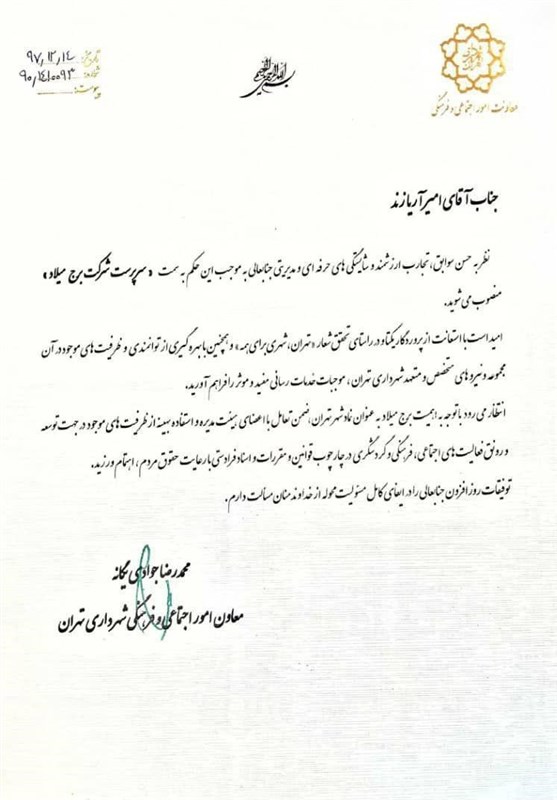 معاونت امور اجتماعی و فرهنگی
بسم الله الرحمن الرحیم
تاریخ: ۹۷,۱۲,۱۴
شماره:
پیوست:
جناب آقای امیر آریازند
نظر به حسن سوابق، تجارب ارزشمند و شایستگی های حرفه ای و مدیریتی جنابعالی به موجب این حکم به سمت «سرپرست شرکت برج میلاد»
منصوب می شوید.
امید است با استعانت از پروردگار یکتا و در راستای تحقق شعار «تهران، شهری برای همه» و همچنین با بهره گیری از توانمندی و ظرفیت های موجود در آن
مجموعه و نیروهای متخصص و متعهد شهرداری تهران، موجبات خدمات رسانی مفید و موثر را فراهم آورید.
انتظار می رود با توجه به اهمیت برج میلاد به عنوان نماد شهر تهران، ضمن تعامل با اعضای هیئت مدیره و استفاده بهینه از ظرفیت های موجود در جهت توسعه
و رونق فعالیت های اجتماعی، فرهنگی و گردشگری در چارچوب قوانین و مقررات و اسناد فرادستی با رعایت حقوق مردم، اهتمام ورزید.
توفیقات روز افزون جنابعالی را در ایفای کامل مسئولیت محوله از خداوند منان مسالت دارم.
محمدرضا جوادی یگانه
معاون امور اجتماعی و فرهنگی شهرداری تهران